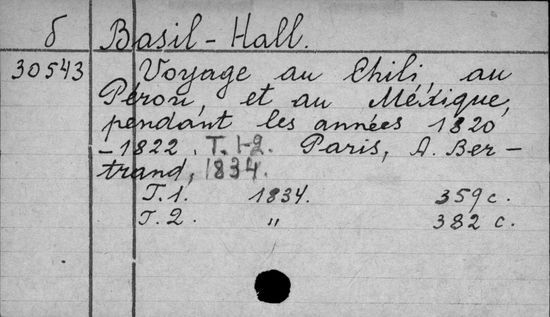 б Basil-Hall.
30543 Voyage au Chili, au
Pérou, et au Méxique,
pendant les années 1820
-1822. T. 1-2. Paris, A. Ber-
trand, 1834.
T. 1. 1834. 359 c.
T. 2. " 382 c.